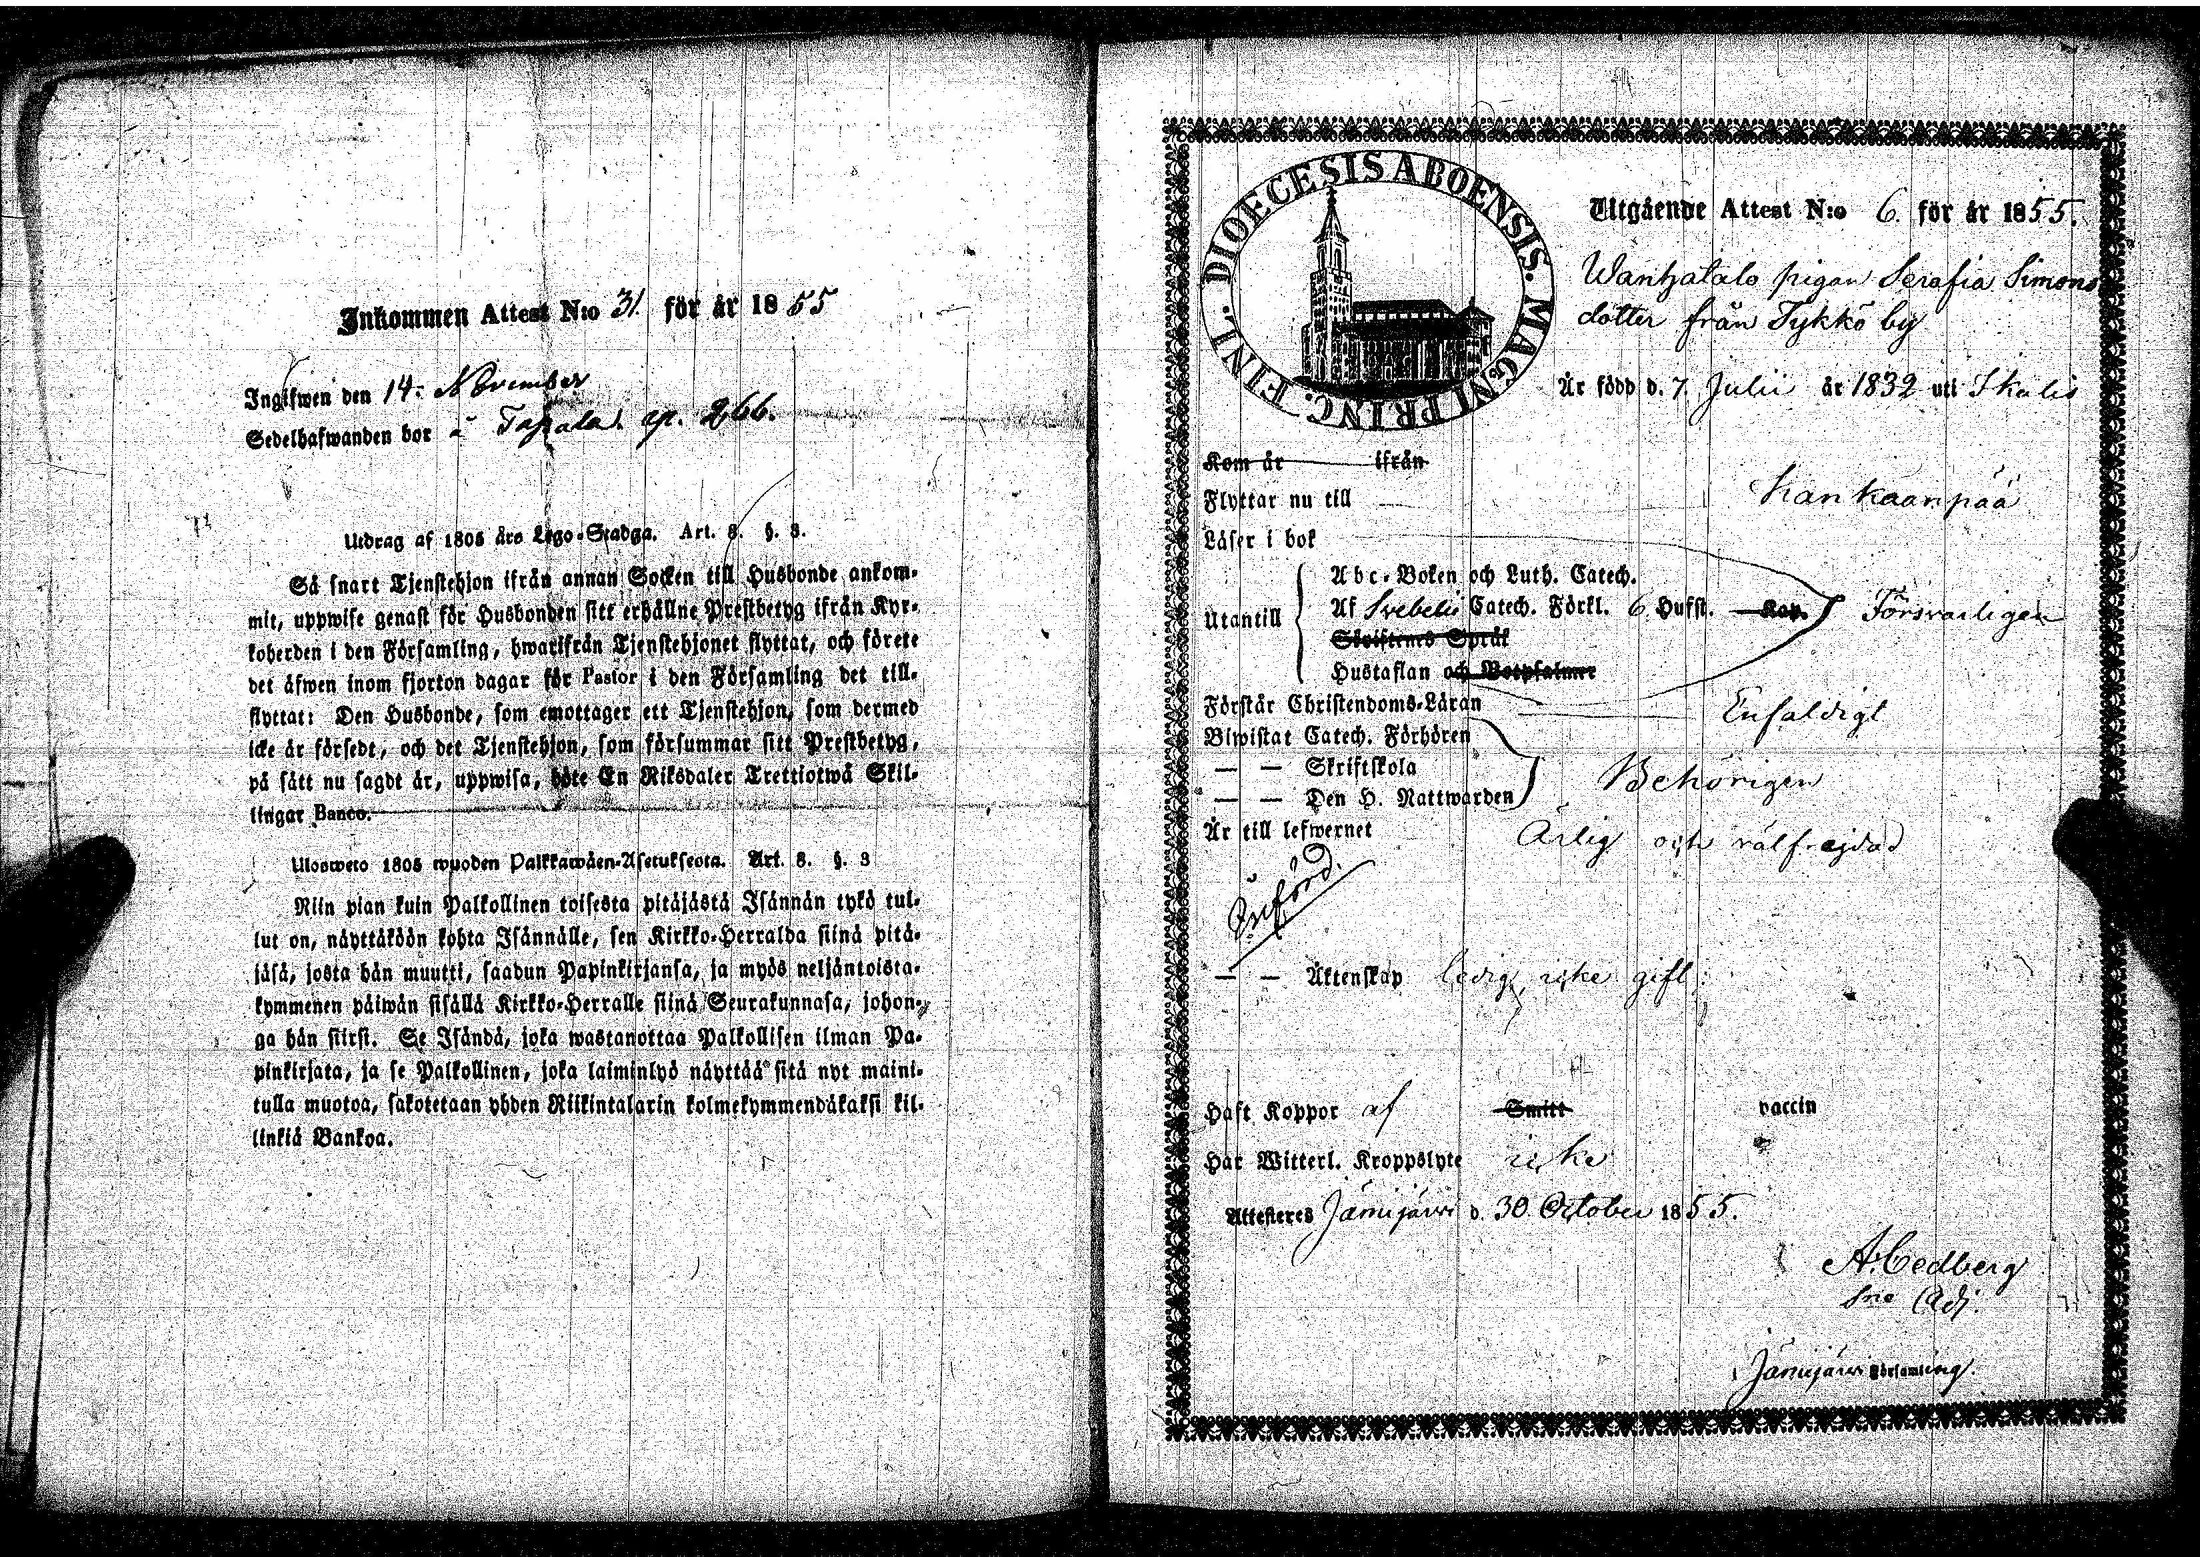 Inkommen Attest N:o 31. för år 1855
Ingifwen den 14. November
Sedelhafwanden bor å Tapala. op. 266.
Utdrag af 1805 års Lego-Stadga. Art. 8. §. 3.
Så snart Tjenstehjon ifrån annan Socken till Husbonde ankom-
mit, uppwise genast för Husbonden sitt erhållne Prestbetyg ifrån Kyr-
koherden i den Församling, hwarifrån Tjenstehjonet flyttat, och förete
det äfwen inom fjorton dagar för Pastor i den Församling det till-
flyttat: Den Husbonde, som emottager ett Tjenstehjon, som dermed
icke är försedt, och det Tjenstehjon, som försummar sitt Prestbetyg,
på sätt nu sagdt är, uppwisa, böte En Riksdaler Trettiotwå Skil-
lingar Banco.
Ulosweto 1805 wuoden Palkkawäen-Asetuksesta. Art. 8. §. 3
Niin pian kuin Palkollinen toisesta pitäjästä Isännän tykö tul-
lut on, näyttäköön kohta Isännälle, sen Kirkko-Herralda siinä pitä-
jäsä, josta hän muutti, saadun Papinkirjansa, ja myös neljäntoista-
kymmenen päiwän sisällä Kirkko-Herralle siinä Seurakunnasa, johon-
ga hän siirst. Se Isändä, joka wastanottaa Palkollisen ilman Pa-
pinkirjata, ja se Palkollinen, joka laiminlyö näyttää sitä nyt maini-
tulla muotoa, sakotetaan yhden Riikintalarin kolmekymmendäkaksi kil-
linkiä Bankoa.
DIOECESIS ABOENSIS. MAGNI PRINC. FINL.
Utgående Attest N:o 6. för år 1855.
Wanhatalo pigan Serafia Simons
dotter från Tykkö by
Är född d. 7. Julii år 1832 uti Ikalis
Kom år ifrån
Flyttar nu till Kankaanpää
Läser i bok
Utantill
Abc-Boken och Luth. Catech.
Af Svebelii Catech. Förkl. 6 Hufst. Kap. Försvarligen
Skriftenes Språk
Hustaflan och Botpsalmer
Förstår Christendoms-Läran Enfaldigt
Biwistat Catech. Förhören
— — Skriftskola Behörigen
— — Den H. Nattwarden
Är till lefwernet Ärlig och välfrejdad
— — Äktenskap ledig, icke gift.
Haft Koppor af Smitt vaccin
Har Witterl. Kroppslyte icke
Attesteres Jämijärvi d. 30 October 1855.
A. Cedberg
Sne Adj.
Jämijärvi Församling.